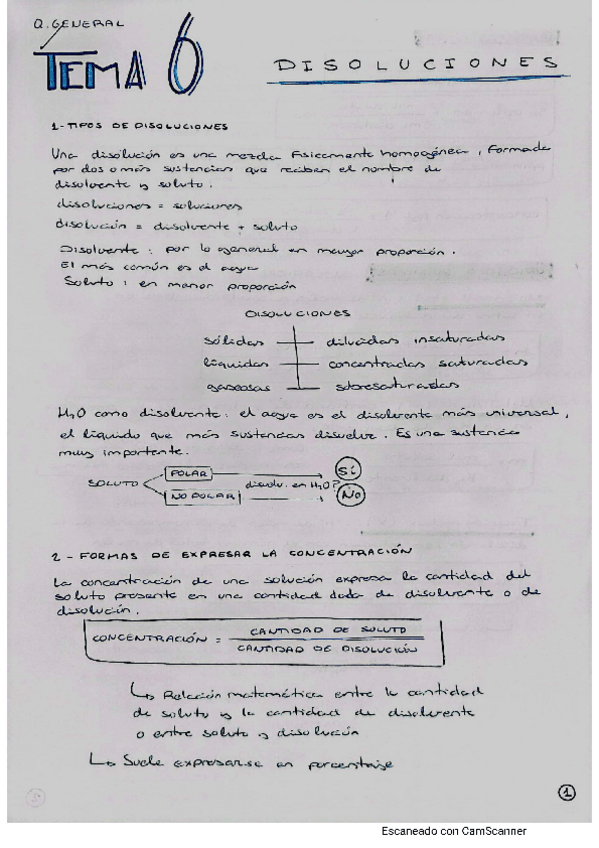 Q. GENERAL
TEMA 6
DISOLUCIONES
1-TIPOS DE DISOLUCIONES
Una disolución es una mezcla fisicamente homogénea, formada
por dos o más sustancias que reciben el nombre de
disolvente y soluto.
disoluciones = soluciones
disolución = disolvente + soluto
Disolvente: por lo general en mayor proporción.
El más común es el agua
Soluto: en menor proporción
DISOLUCIONES
sólidas diluidas insaturadas
líquidas concentradas saturadas
gaseosas sobresaturadas
H2O como disolvente: el agua es el disolvente más universal,
el líquido que más sustancias disuelve. Es una sustancia
muy importante.
POLAR SÍ
SOLUTO disolv. en H2O?
NO POLAR NO
2 - FORMAS DE EXPRESAR LA CONCENTRACIÓN
La concentración de una solución expresa la cantidad del
soluto presente en una cantidad dada de disolvente o de
disolución.
CONCENTRACIÓN = CANTIDAD DE SOLUTO
CANTIDAD DE DISOLUCIÓN
↳ Relación matemática entre la cantidad
de soluto y la cantidad de disolvente
o entre soluto y disolución
↳ Suele expresarse en porcentaje
1
Escaneado con CamScanner